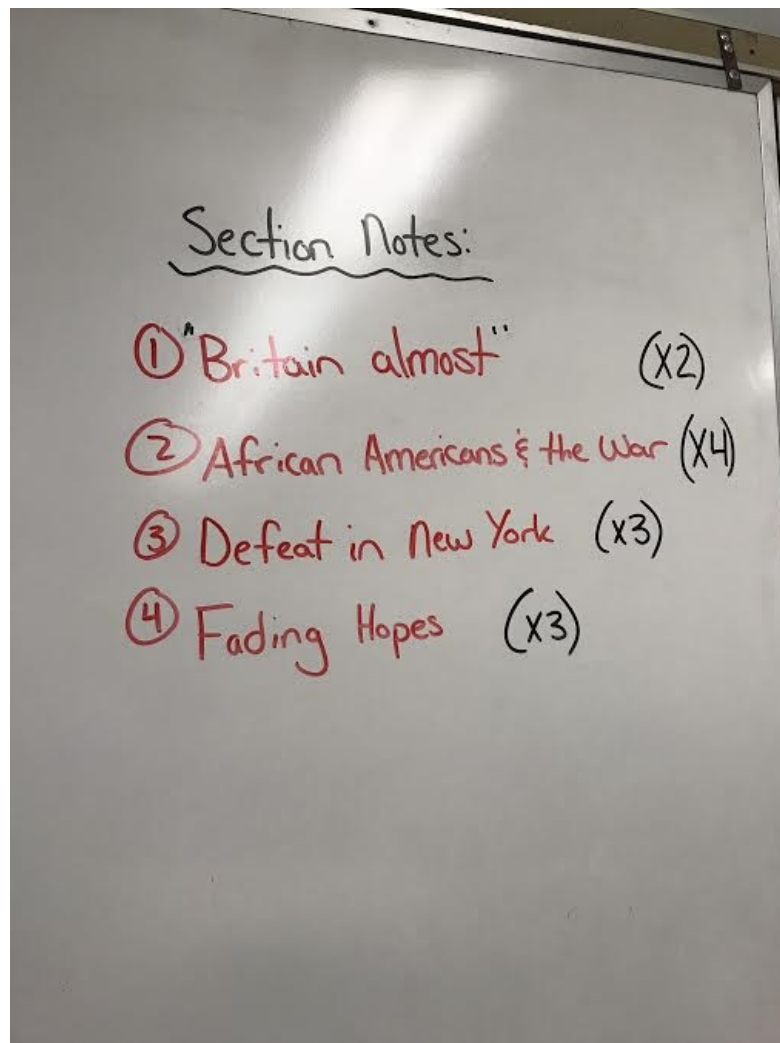 Section Notes:
① "Britain almost" (x2)
② African Americans & the War (x4)
③ Defeat in New York (x3)
④ Fading Hopes (x3)